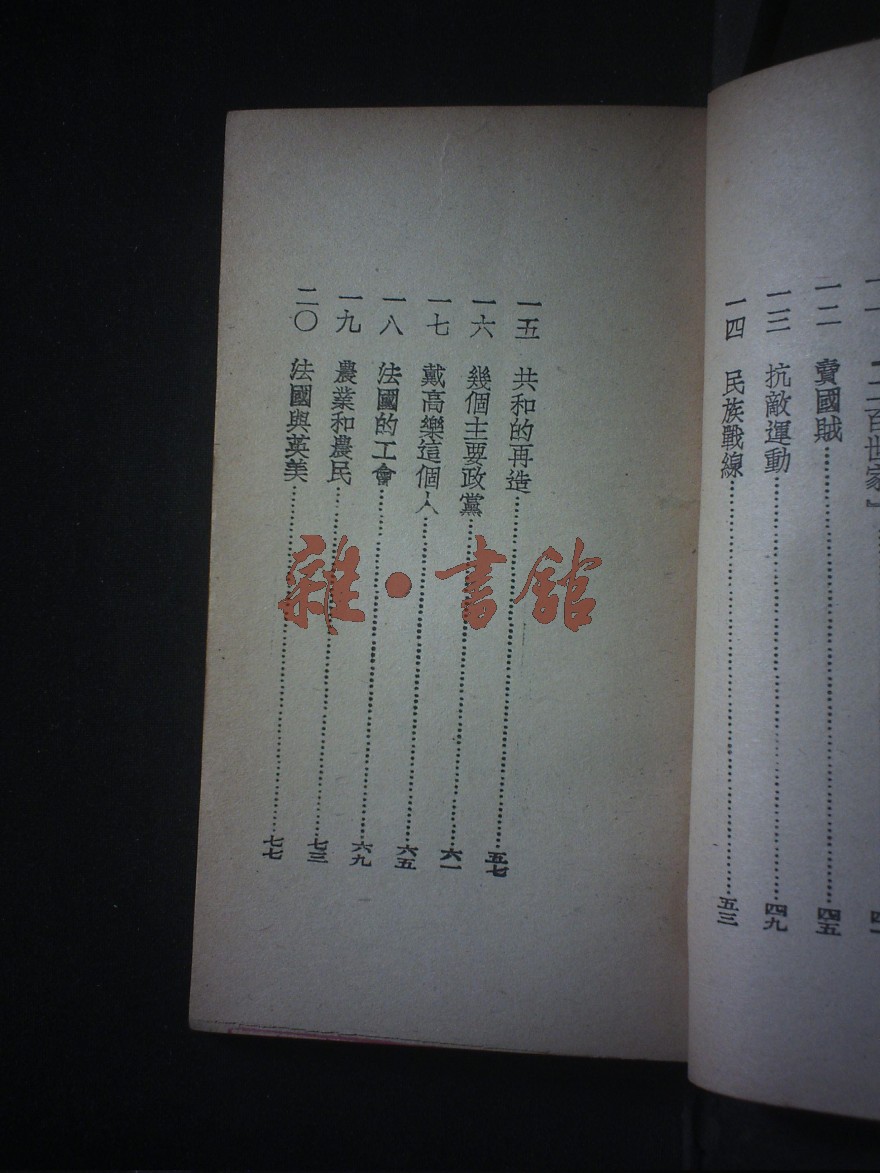 一一 『二百世家』 四一
一二 賣國賊 四五
一三 抗敵運動 四九
一四 民族戰線 五三
一五 共和的再造 五七
一六 幾個主要政黨 六一
一七 戴高樂這個人 六五
一八 法國的工會 六九
一九 農業和農民 七三
二〇 法國與英美 七七
雜·書館